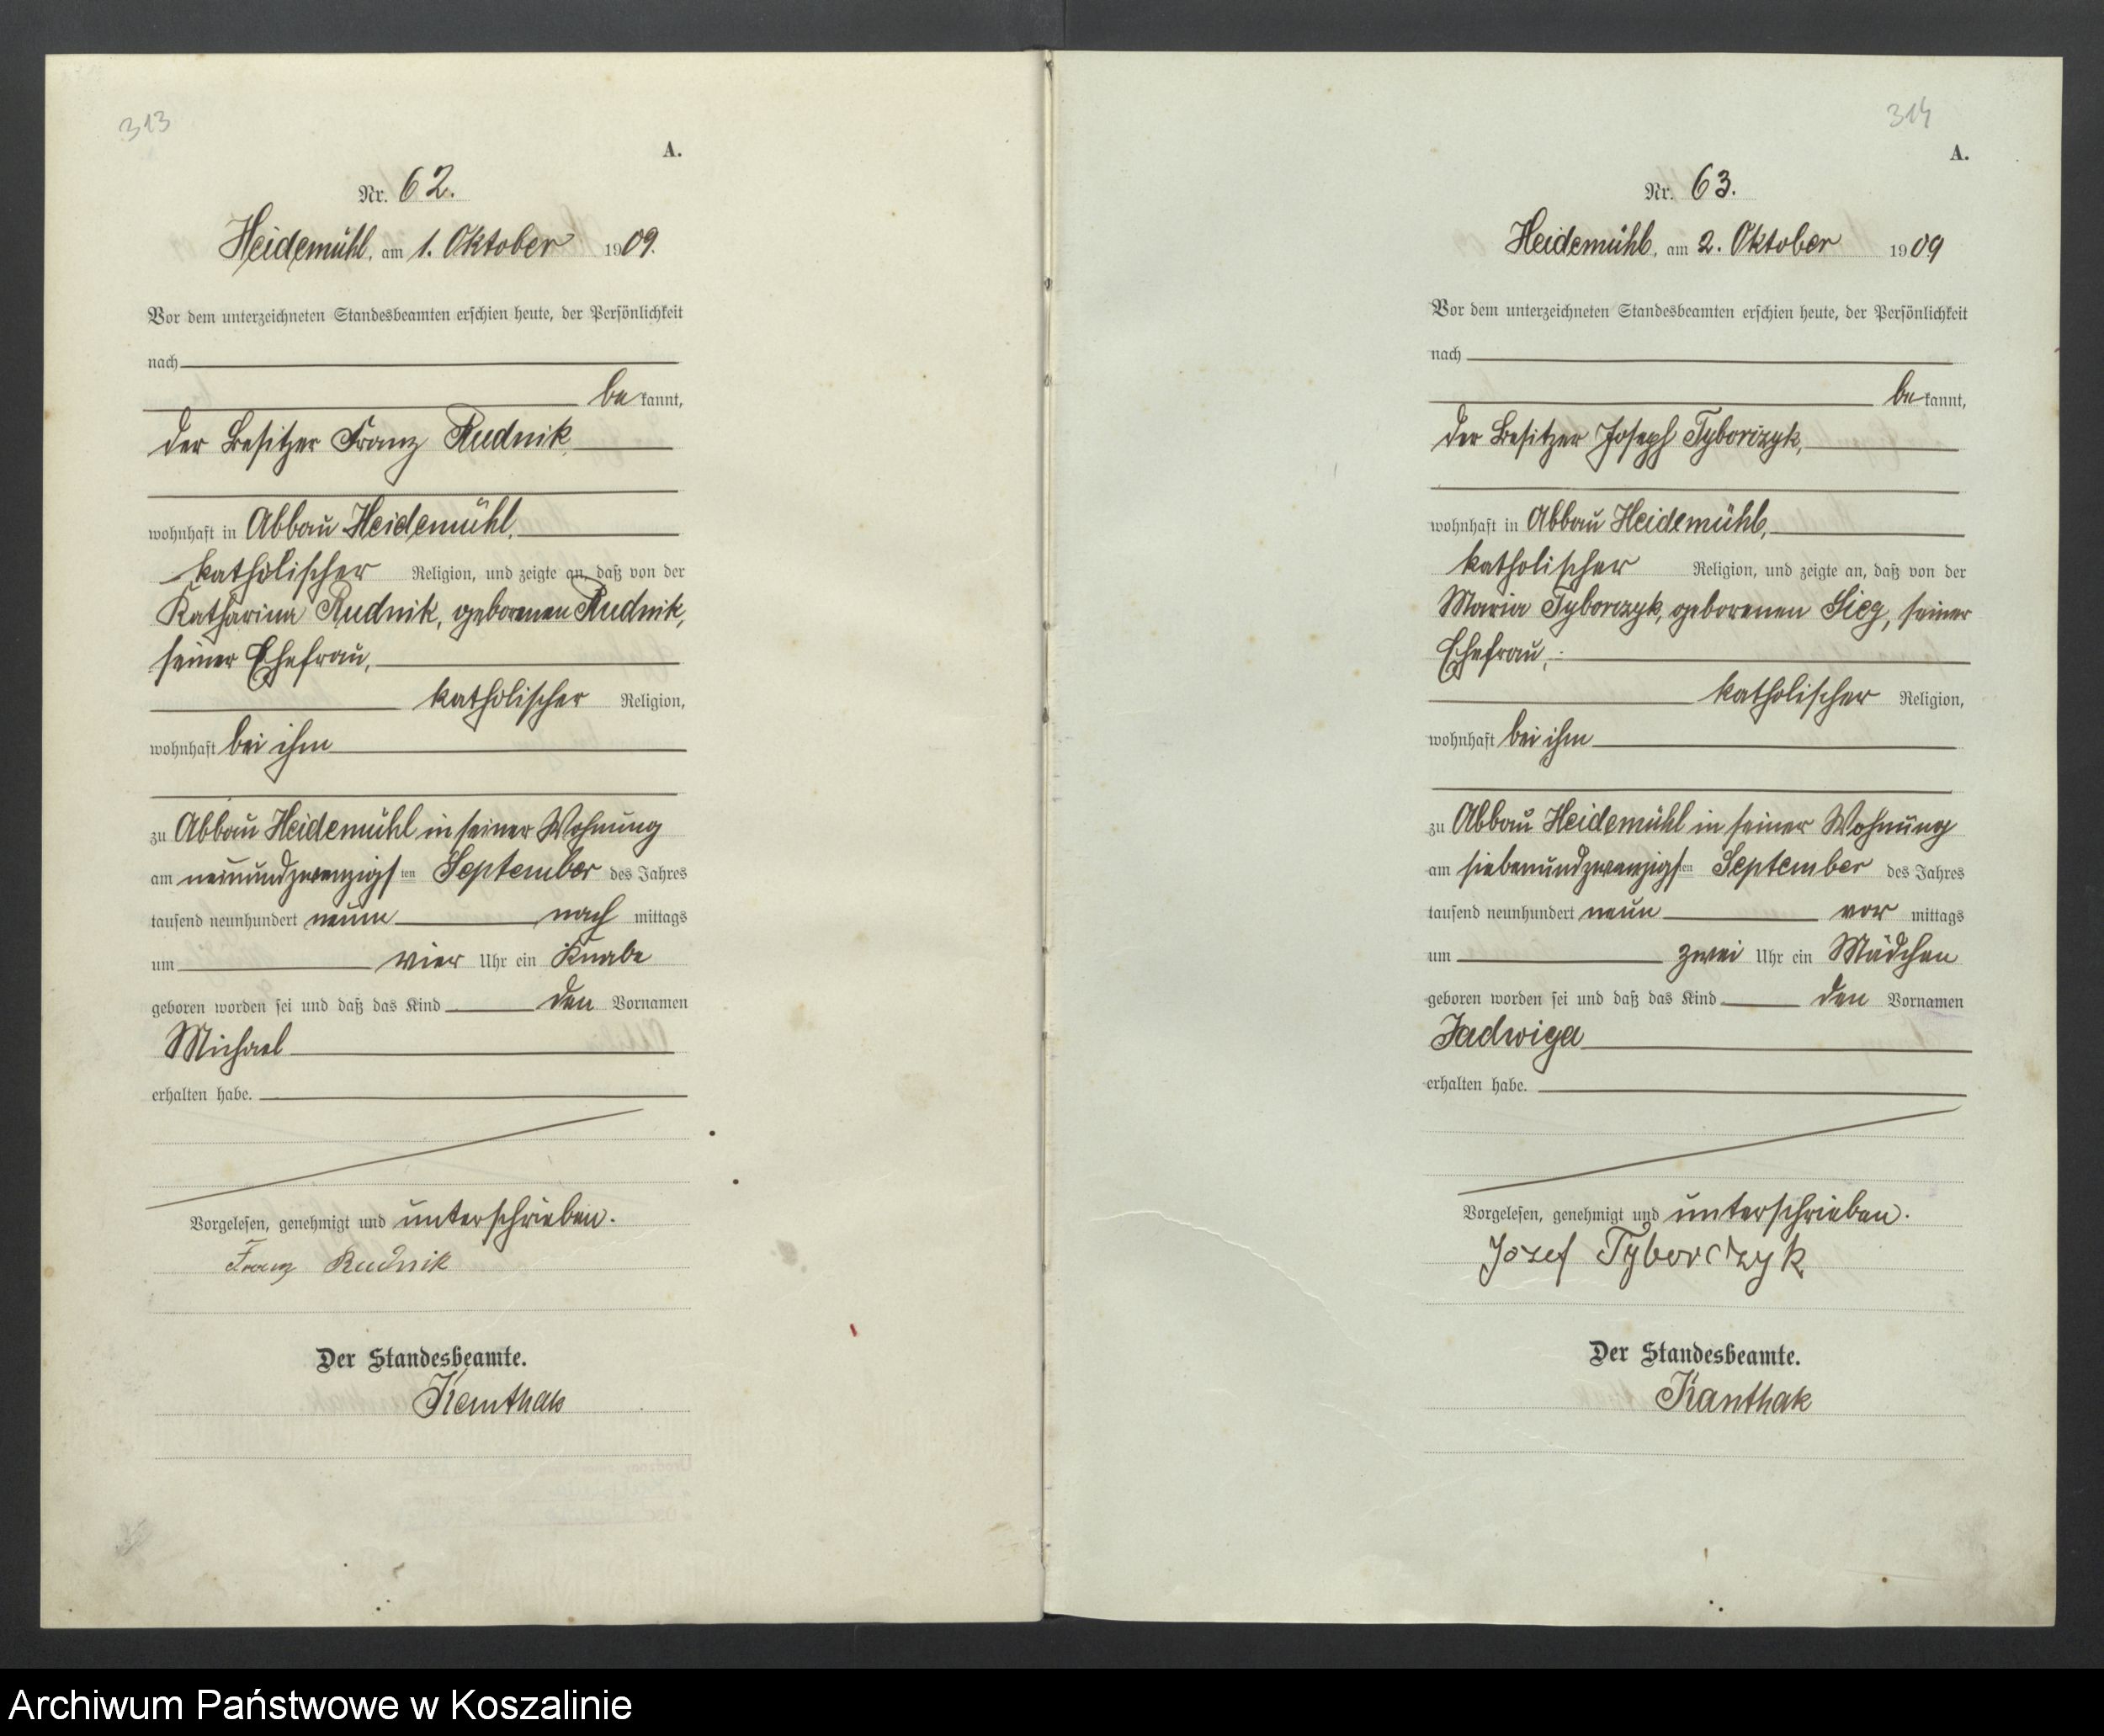 313
A.
Nr. 62.
Heidemühl, am 1. Oktober 1909.
Vor dem unterzeichneten Standesbeamten erschien heute, der Persönlichkeit
nach
bekannt,
der Besitzer Franz Rudnik
wohnhaft in Abbau Heidemühl,
katholischer Religion, und zeigte an, daß von der
Katharina Rudnik, geborenen Rudnik,
seiner Ehefrau,
katholischer Religion,
wohnhaft bei ihm
zu Abbau Heidemühl in seiner Wohnung
am neunundzwanzigsten September des Jahres
tausend neunhundert neun nach mittags
um vier Uhr ein Knabe
geboren worden sei und daß das Kind den Vornamen
Michael
erhalten habe.
Vorgelesen, genehmigt und unterschrieben.
Franz Rudnik
Der Standesbeamte.
Kanthak
314
A.
Nr. 63.
Heidemühl, am 2. Oktober 1909
Vor dem unterzeichneten Standesbeamten erschien heute, der Persönlichkeit
nach
bekannt,
der Besitzer Joseph Tyborczyk,
wohnhaft in Abbau Heidemühl,
katholischer Religion, und zeigte an, daß von der
Maria Tyborczyk, geborenen Sieg, seiner
Ehefrau,
katholischer Religion,
wohnhaft bei ihm
zu Abbau Heidemühl in seiner Wohnung
am siebenundzwanzigsten September des Jahres
tausend neunhundert neun vor mittags
um zwei Uhr ein Mädchen
geboren worden sei und daß das Kind den Vornamen
Jadwiga
erhalten habe.
Vorgelesen, genehmigt und unterschrieben.
Józef Tyborczyk
Der Standesbeamte.
Kanthak
Archiwum Państwowe w Koszalinie